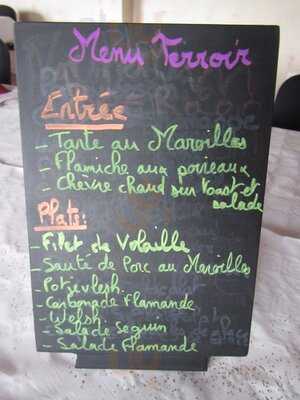 Menu Terroir
Entrée
- Tarte au Maroilles
- Flamiche aux poireaux
- Chèvre chaud sur toast et
salade
Plats:
- Filet de Volaille
- Sauté de Porc au Maroilles
- Potjevlesh.
- Carbonade Flamande
- Welsh.
- Salade Seguin
- Salade Flamande